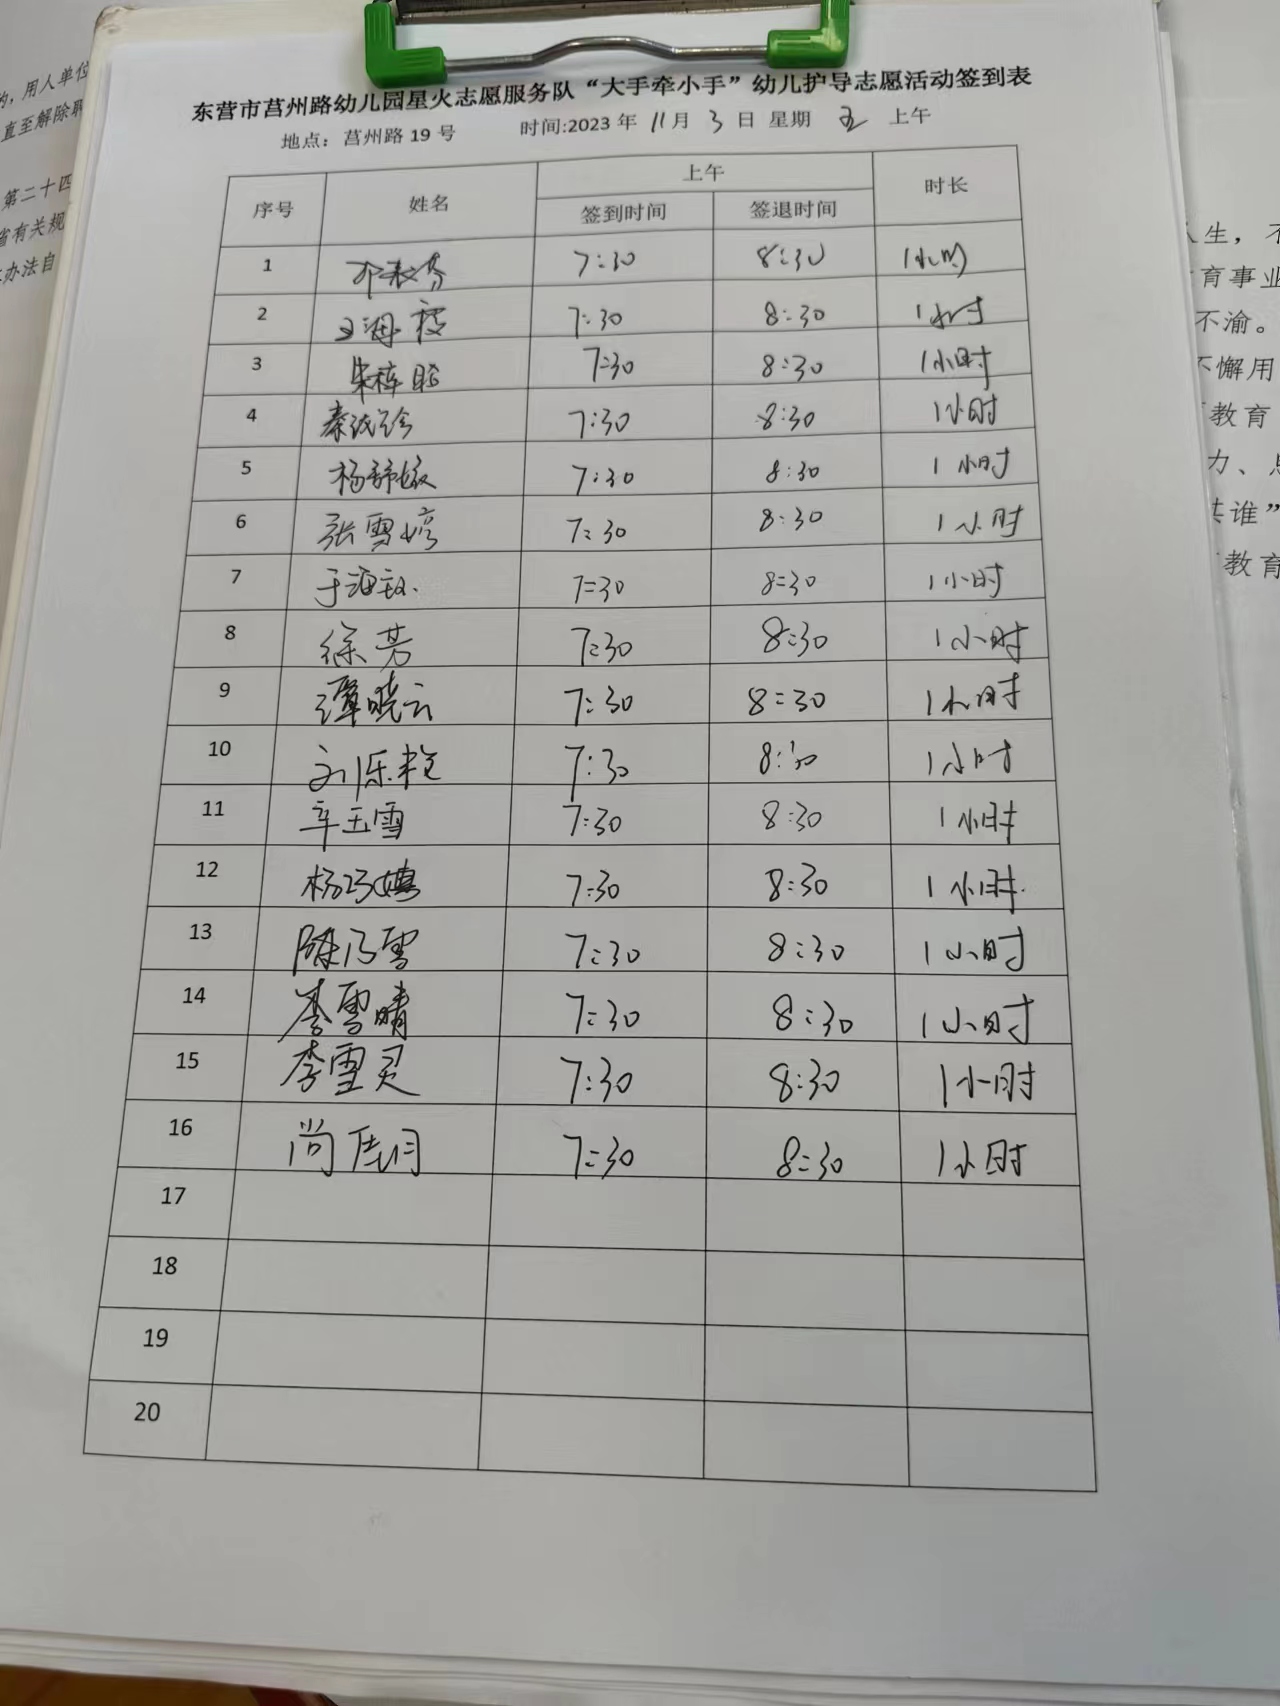 的，用人单位
直至解除聘
第二十四
省有关规
办法自
东营市莒州路幼儿园星火志愿服务队“大手牵小手”幼儿护导志愿活动签到表
地点：莒州路 19 号 时间:2023 年 11 月 3 日 星期 五 上午
序号 姓名 上午 时长
签到时间 签退时间
1 7:30 8:30 1小时
2 王海霞 7:30 8:30 1小时
3 7:30 8:30 1小时
4 秦诚珍 7:30 8:30 1小时
5 杨静媛 7:30 8:30 1小时
6 张雪婷 7:30 8:30 1小时
7 于海敏 7:30 8:30 1小时
8 徐芳 7:30 8:30 1小时
9 谭晓云 7:30 8:30 1小时
10 7:30 8:30 1小时
11 辛玉雪 7:30 8:30 1小时
12 7:30 8:30 1小时
13 陈乃雪 7:30 8:30 1小时
14 李雪晴 7:30 8:30 1小时
15 李雪灵 7:30 8:30 1小时
16 尚佳月 7:30 8:30 1小时
17
18
19
20
人生，不
育事业
不渝。
不懈用
教育
力、
共谁”
教育